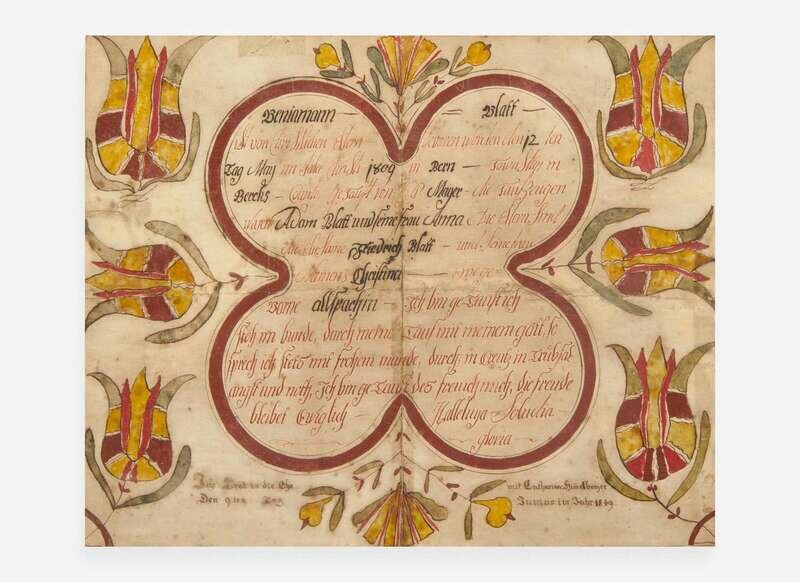 Beniamann — Blatt —
ist von Eltern geboren worden den 12 ten
Tag May im Jahr Christi 1809 in Bern — in
Bercks — Caunti getauft von H Mayer — die taufzeugen
waren Adam Blatt und seine frau Anna die Eltern sind
Friedrich Blatt — und seine
Namens Christina —
Borne allspachin — Ich bin getauft ich
steh im bunde, durch meine Tauf mit meinem gott, so
sprech ich stets mit frohem munde, durch in Creutz in Trübsal
angst und noth, Ich bin getauft des freu ich mich, die freude
bleibet Ewiglich — Halleluya
gloria —
Ich in die Ehe mit Catharina
Den 9 ten Tag im Jahr 18